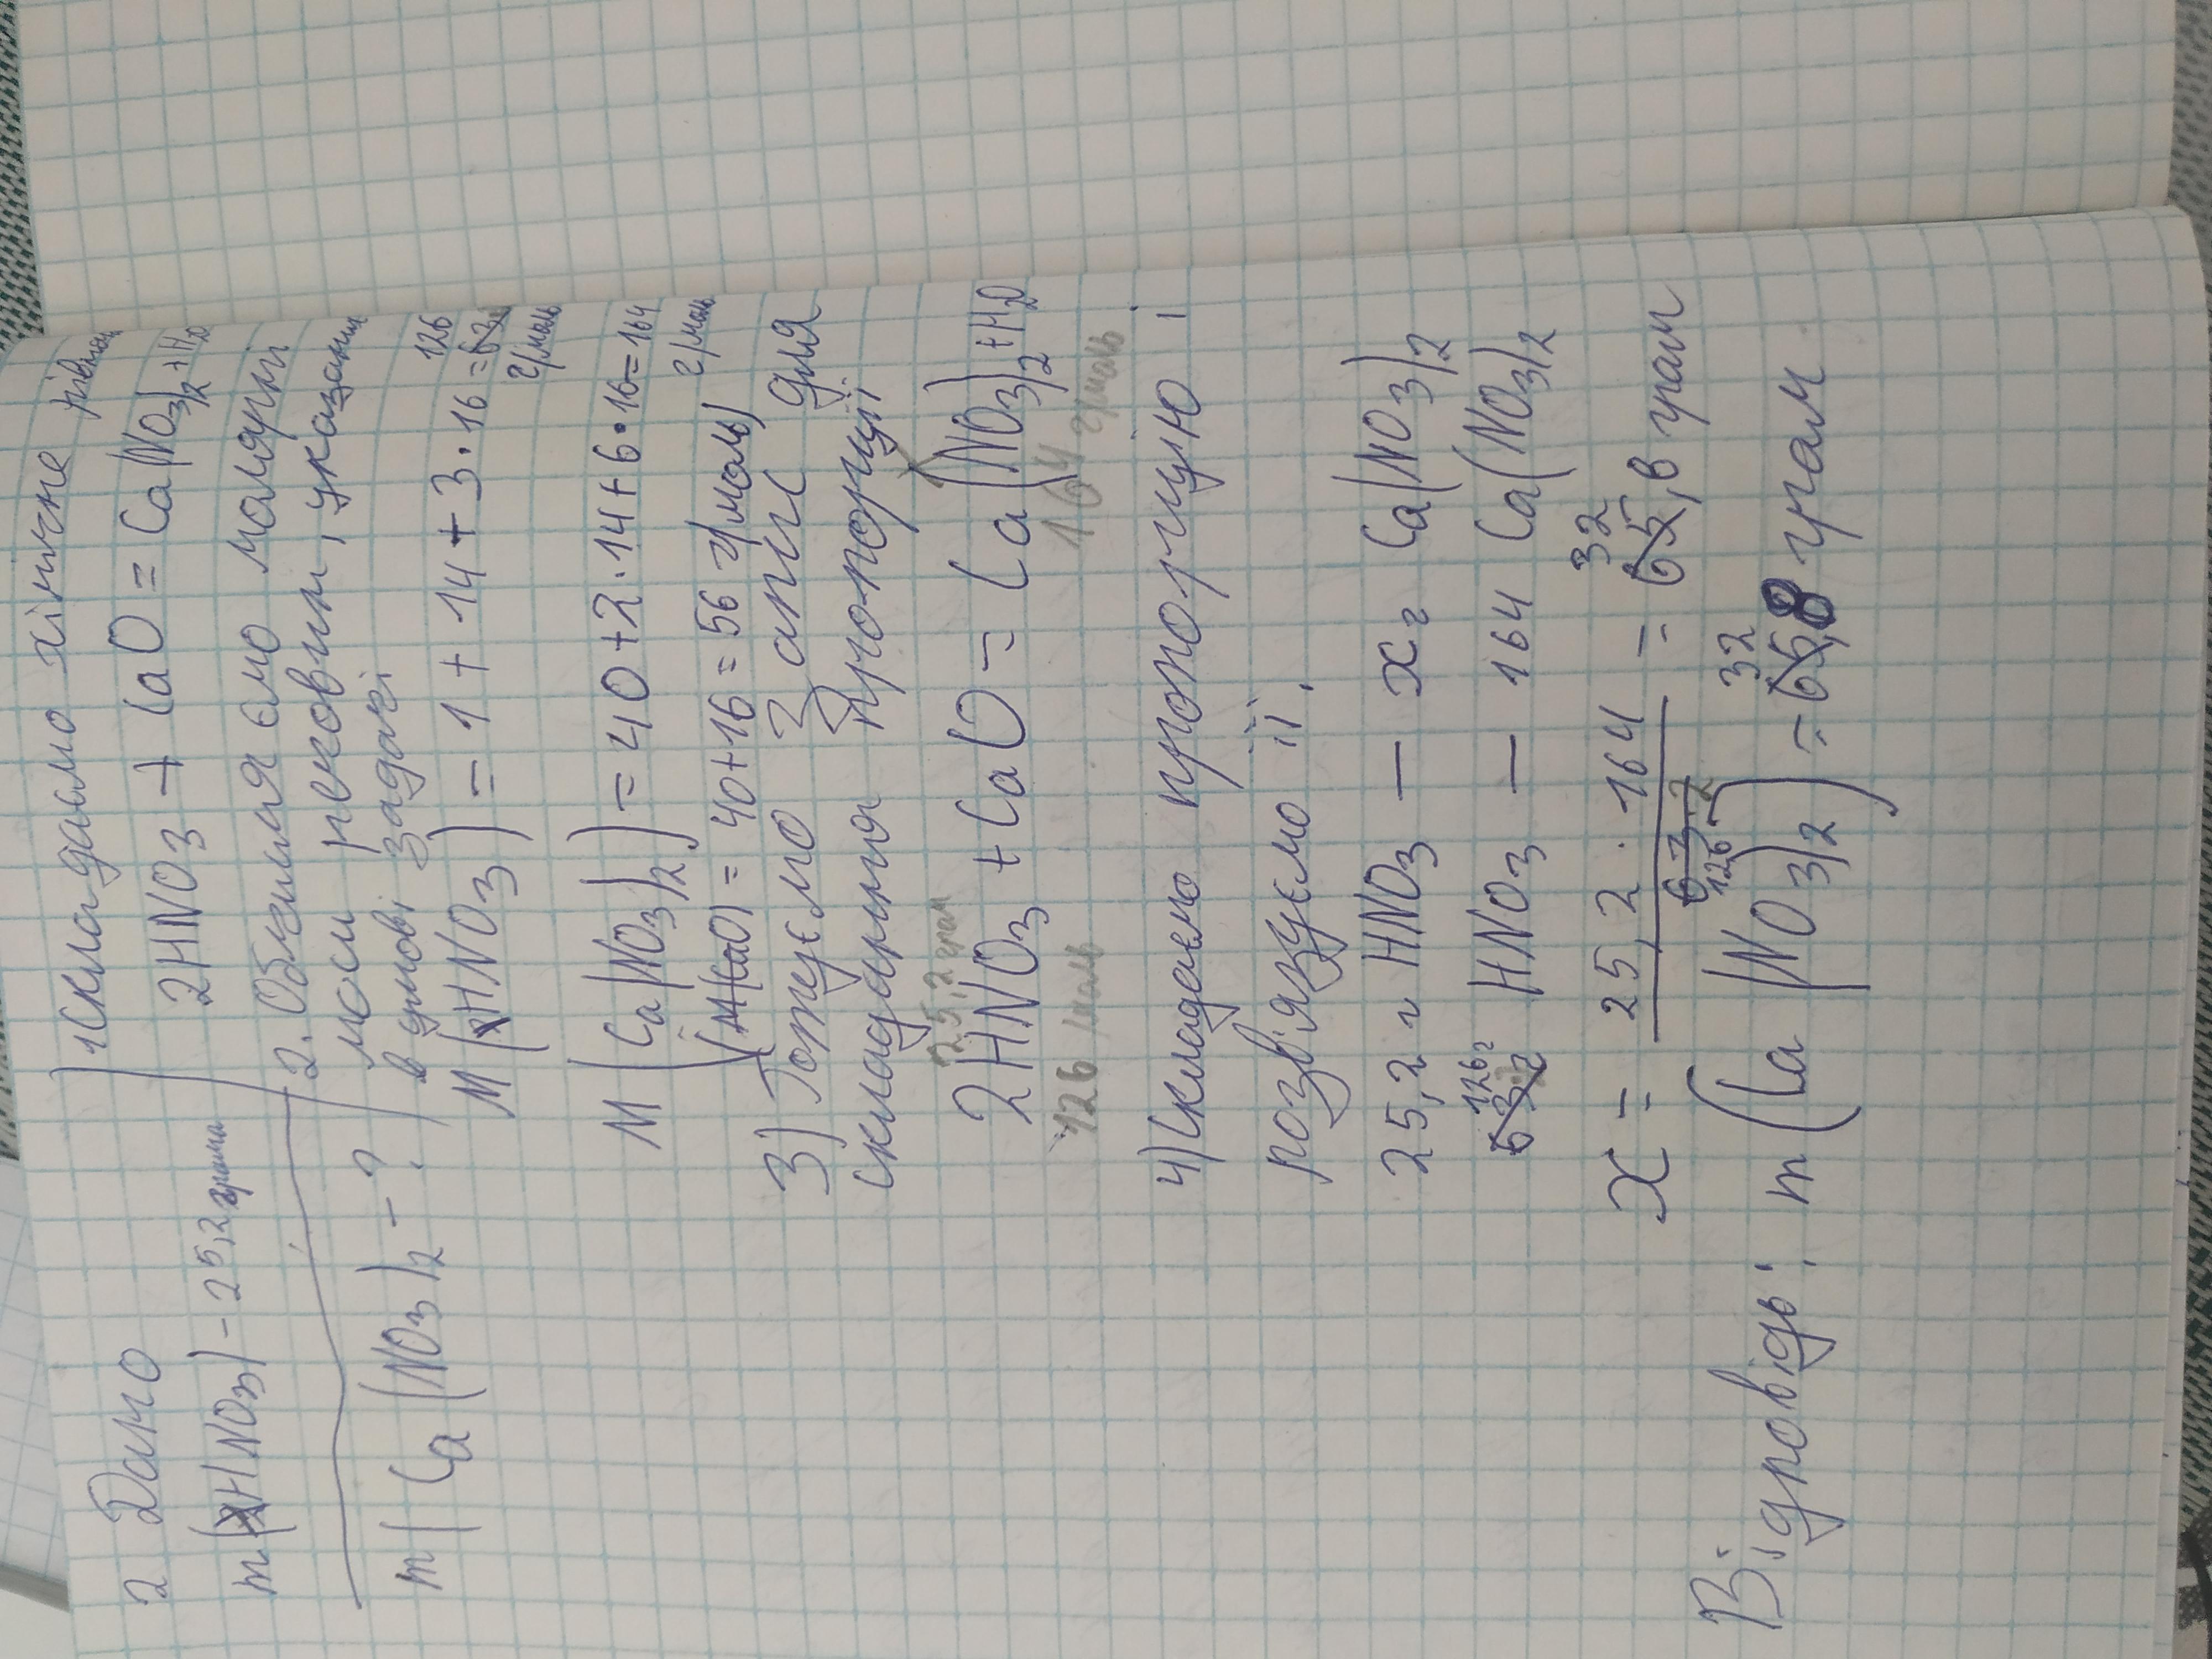 2 Дано
m(HNO3) - 25,2 грама
m(Ca(NO3)2 - ?
1 Складаємо хімічне
2HNO3 + CaO = Ca(NO3)2 + H2O
2. Обчисляємо молярні
маси речовин, указани
в умові задачі
M(HNO3) = 1 + 14 + 3 · 16 = 63 126
г/моль
M(Ca(NO3)2) = 40 + 2 · 14 + 6 · 16 = 164
г/моль
M(CaO) = 40 + 16 = 56 г/моль)
3) Готуємо запис для
складання пропорції
25,2 грам
2HNO3 + CaO = Ca(NO3)2 + H2O
126 г/моль 164 г/моль
4) Складаємо пропорцію і
розв'язуємо її.
25,2 г HNO3 — x г Ca(NO3)2
63 г 126 г HNO3 — 164 Ca(NO3)2
x = 25,2 · 164 / 63 · 2 126 = 65 32,8 грам
Відповідь: m(Ca(NO3)2) = 65 32,8 грам.